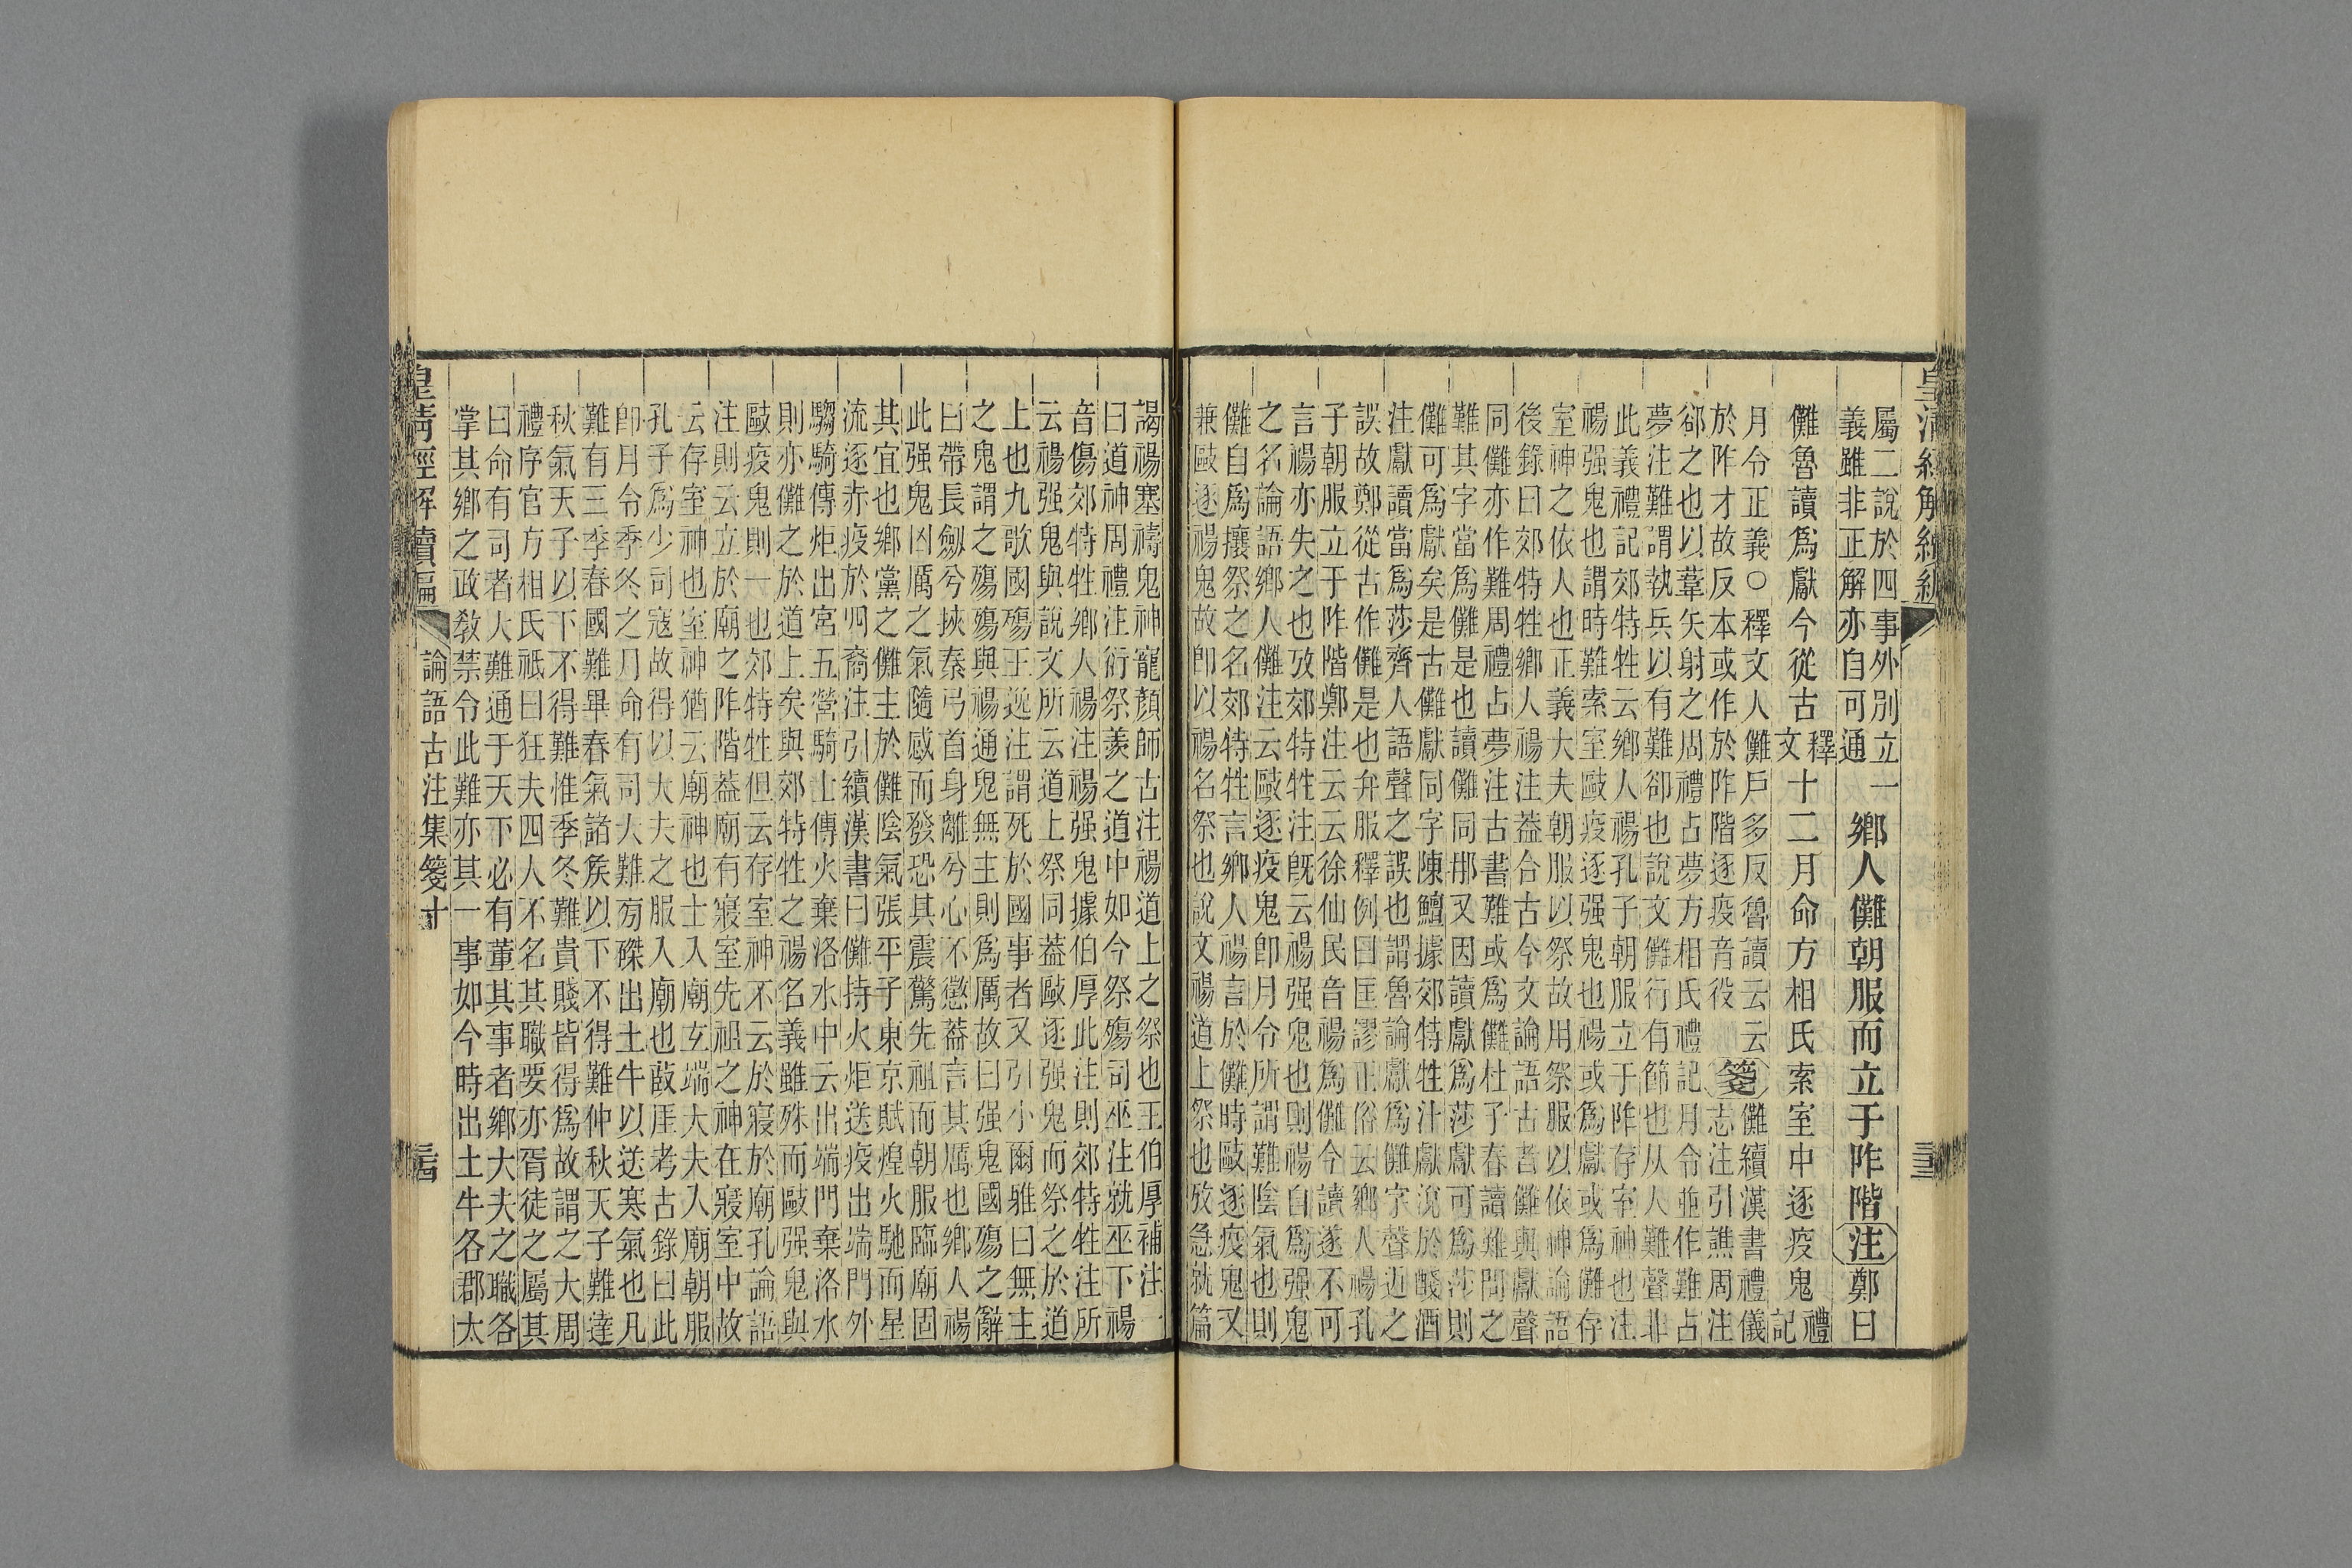 皇清經解續編
屬二說於四事外別立一
義雖非正解亦自可通
鄉人儺朝服而立于阼階注鄭曰
儺魯讀爲獻今從古釋文十二月命方相氏索室中逐疫鬼禮記
月令正義○釋文人儺戶多反魯讀云云
於阼才故反本或作於阼階逐疫音役箋儺續漢書禮儀
志注引譙周注
郤之也以葦矢射之周禮占夢方相氏禮記月令並作難占
夢注難謂執兵以有難卻也說文儺行有節也从人難聲非
此義禮記郊特牲云鄉人禓孔子朝服立于阼存室神也注
禓强鬼也謂時難索室歐疫逐强鬼也禓或爲獻或爲儺存
室神之依人也正義大夫朝服以祭故用祭服以依神論語
後錄曰郊特牲鄉人禓注葢合古今文論語古者儺與獻聲
同儺亦作難周禮占夢注古書難或爲儺杜子春讀難問之
難其字當爲儺是也讀儺同那又因讀獻爲莎獻可爲莎則
儺可爲獻矣是古儺獻同字陳鱣據郊特牲汁獻涗於醆酒
注獻讀當爲莎齊人語聲之誤也謂魯論獻爲儺字聲近之
誤故鄭從古作儺是也弁服釋例曰匡謬正俗云鄉人禓孔
子朝服立于阼階鄭注云云徐仙民音禓爲儺今讀遂不可
言禓亦失之也攷郊特牲注旣云禓强鬼也則禓自爲强鬼
之名論語鄉人儺注云歐逐疫鬼卽月令所謂難陰氣也則
儺自爲攘祭之名郊特牲言鄉人禓言於儺時歐逐疫鬼又
兼歐逐禓鬼故卽以禓名祭也說文禓道上祭也攷急就篇
謁禓塞禱鬼神寵顏師古注禓道上之祭也王伯厚補注
曰道神周禮注衍祭羨之道中如今祭殤司巫注就巫下禓
音傷郊特牲鄉人禓注禓强鬼據伯厚此注則郊特牲注所
云禓强鬼與說文所云道上祭同葢歐逐强鬼而祭之於道
上也九歌國殤王逸注謂死於國事者又引小爾雅曰無主
之鬼謂之殤殤與禓通鬼無主則爲厲故曰强鬼國殤之辭
曰帶長劒兮挾秦弓首身離兮心不懲葢言其厲也鄉人禓
此强鬼凶厲之氣隨感而發恐其震驚先祖而朝服臨廟固
其宜也鄉黨之儺主於儺陰氣張平子東京賦煌火馳而星
流逐赤疫於四裔注引續漢書曰儺持火炬送疫出端門外
騶騎傳炬出宮五營騎士傳火棄洛水中云出端門棄洛水
則亦儺之於道上矣與郊特牲之禓名義雖殊而歐强鬼與
歐疫鬼則一也郊特牲但云存室神不云於寢於廟孔論語
注則云立於廟之阼階葢廟有寢室先祖之神在寢室中故
云存室神也室神猶云廟神也士入廟玄端大夫入廟朝服
孔子爲少司寇故得以大夫之服入廟也敔厓考古錄曰此
卽月令季冬之月命有司大難旁磔出土牛以送寒氣也凡
難有三季春國難畢春氣諸矦以下不得難仲秋天子難達
秋氣天子以下不得難惟季冬難貴賤皆得爲故謂之大周
禮序官方相氏祗曰狂夫四人不名其職要亦胥徒之屬其
曰命有司者大難通于天下必有董其事者鄉大夫之職各
掌其鄉之政敎禁令此難亦其一事如今時出土牛各郡太
皇淸經解續編
論語古注集箋十